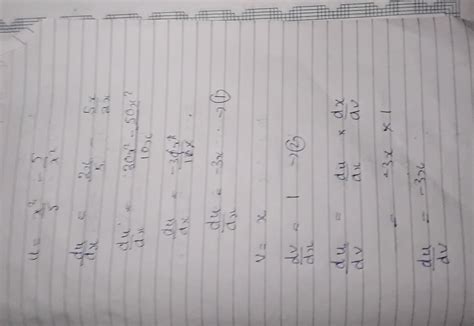 u = x²/5 - 5/x²
du/dx = 2x/5 - 5x/2x
du/dx = 20x² - 50x²/10x
du/dx = -30x²/10x
du/dx = -3x → ①
v = x
dv/dx = 1 → ②
du/dv = du/dx × dx/dv
= -3x × 1
du/dv = -3x